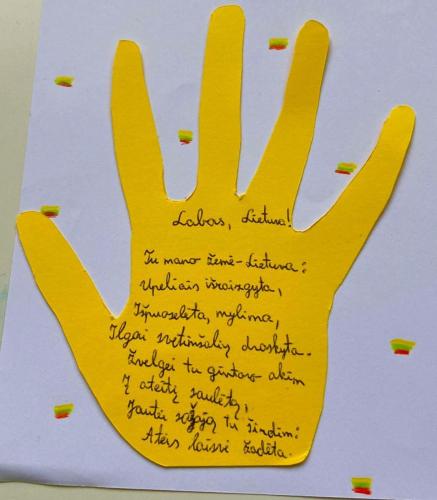 Labas, Lietuva!
Tu mano žemė-Lietuva:
Upeliais išraizgyta,
Išpuoselėta, mylima,
Ilgai svetimšalių draskyta.
Žvelgei tu gintaro akim
Į ateitį saulėtą,
Jautei sąžąją tu širdim:
Ateis laisvė žadėta.